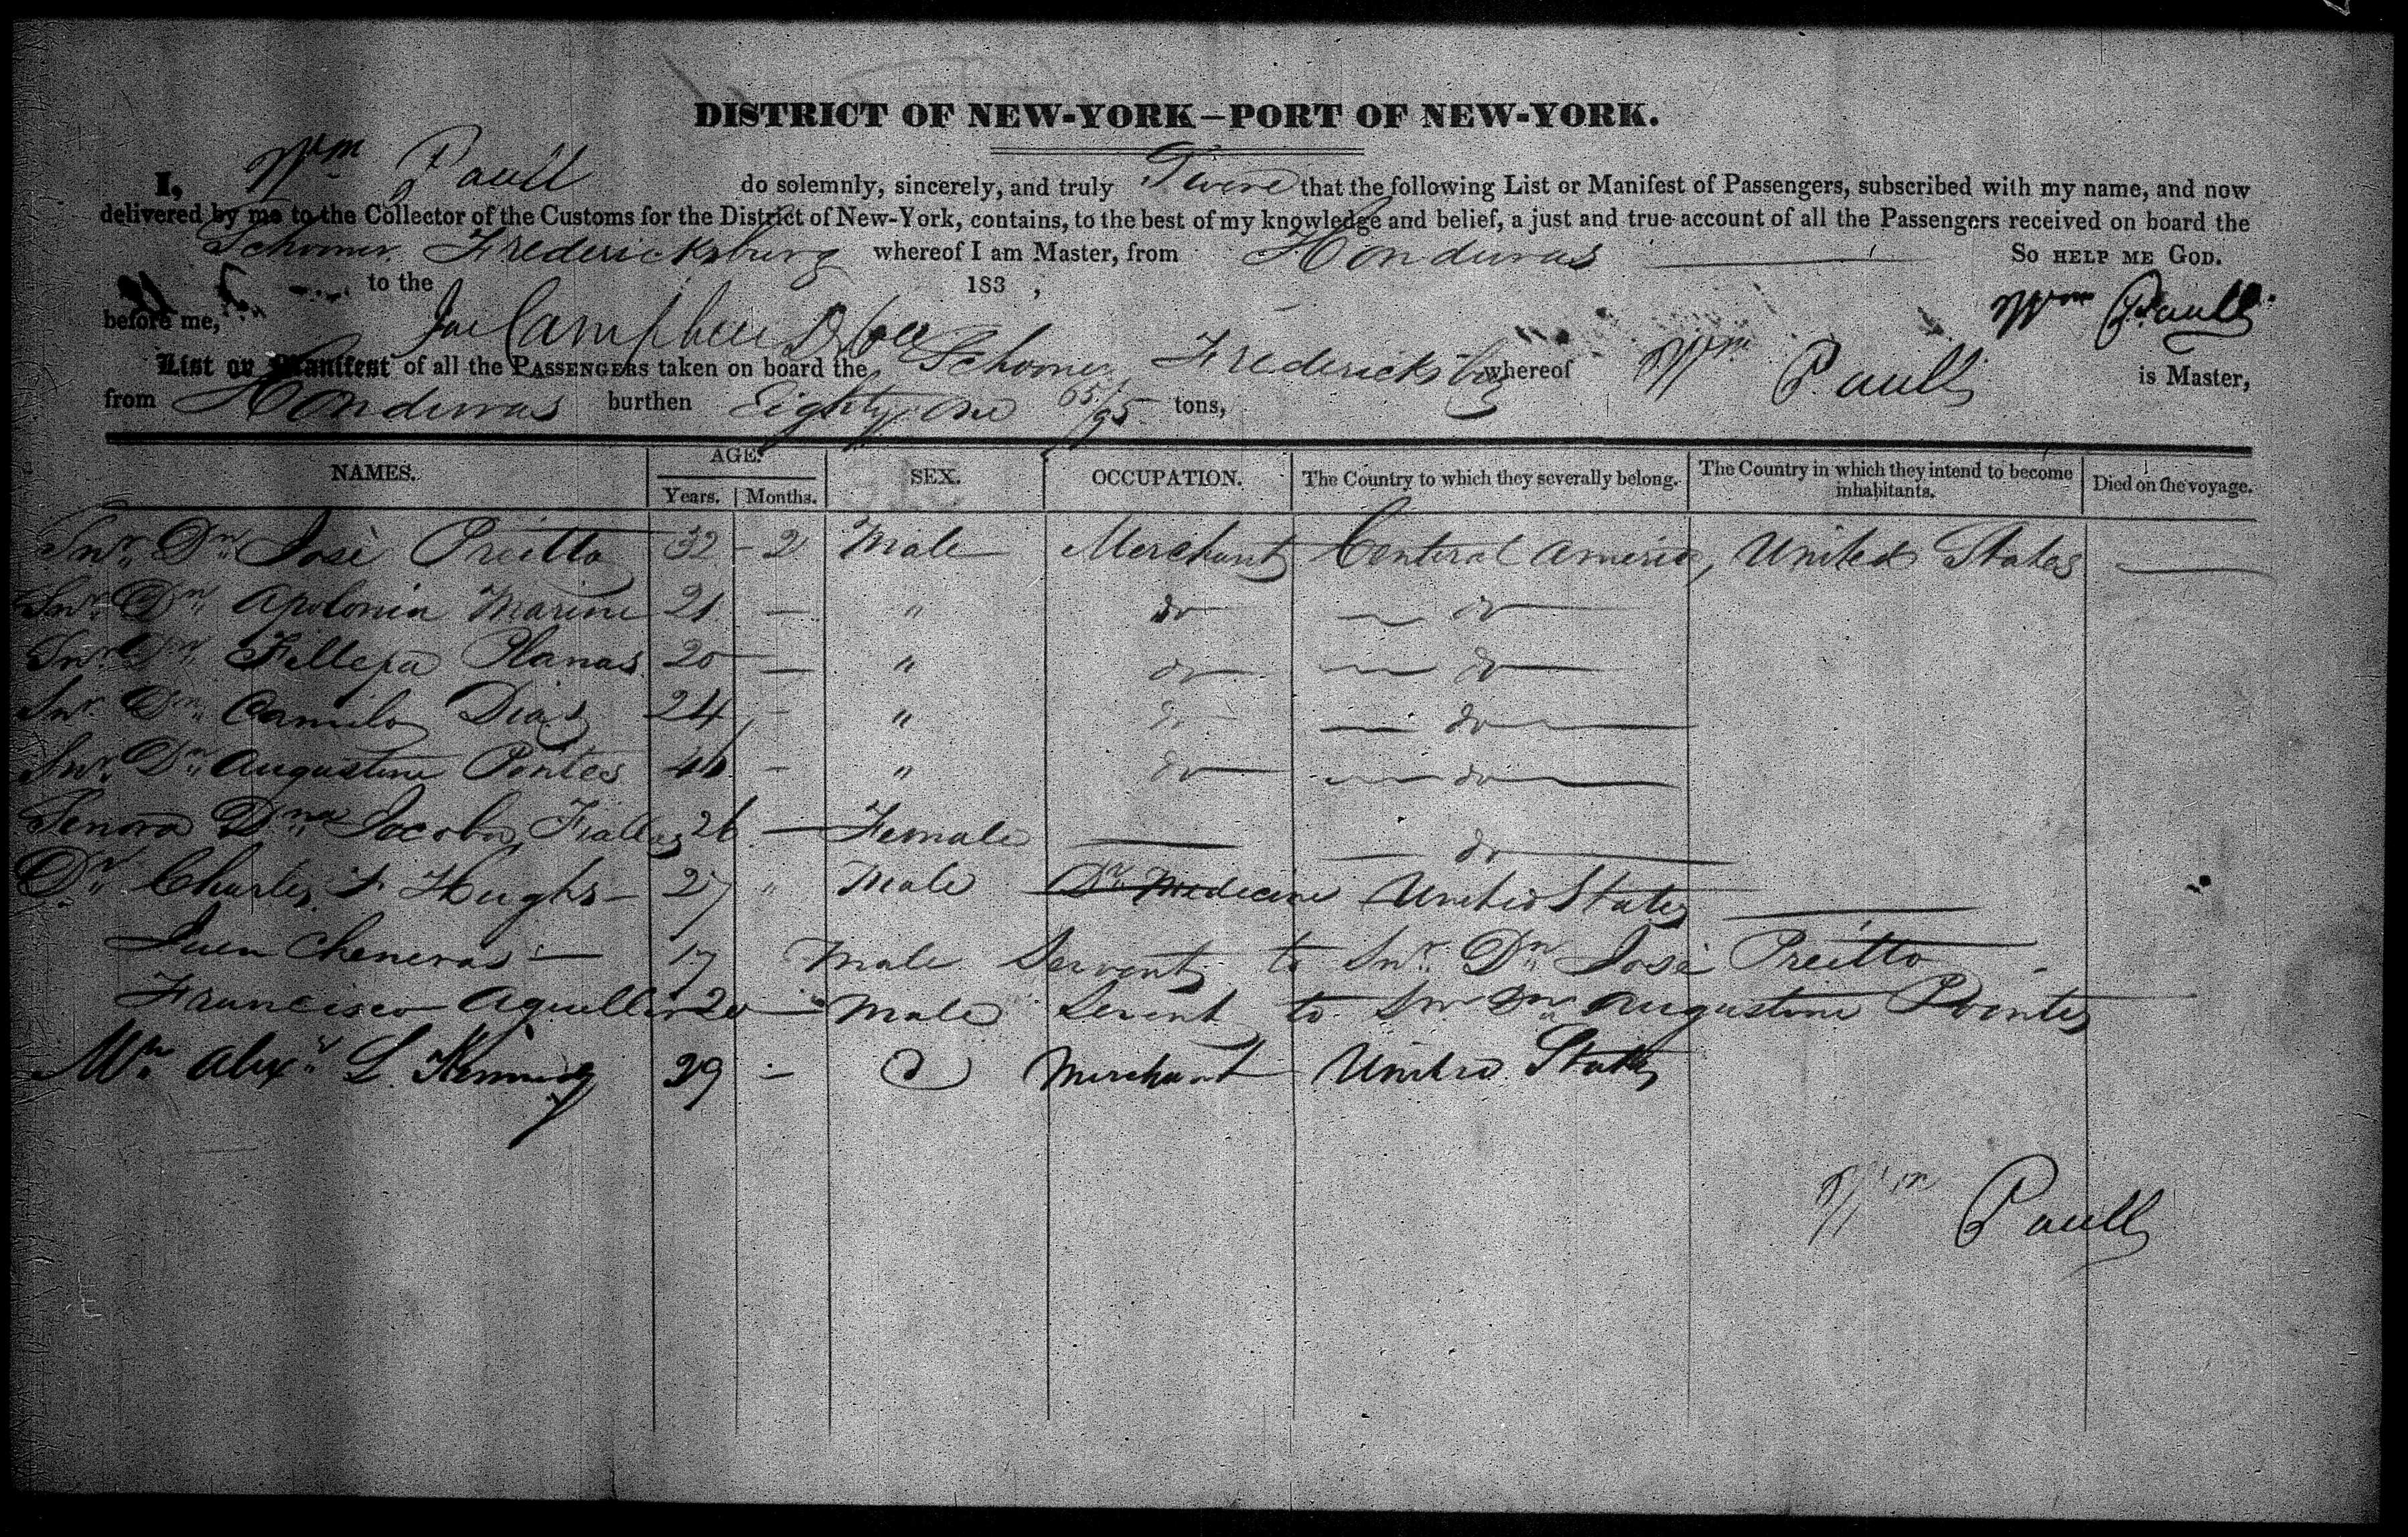 DISTRICT OF NEW-YORK—PORT OF NEW-YORK.
I, Wm Paull do solemnly, sincerely, and truly Swere that the following List or Manifest of Passengers, subscribed with my name, and now
delivered by me to the Collector of the Customs for the District of New-York, contains, to the best of my knowledge and belief, a just and true account of all the Passengers received on board the
Schooner Fredericksburg whereof I am Master, from Honduras So HELP ME GOD.
to the 183 ,
Wm Paull
before me, Campbell D Coll
List or Manifest of all the PASSENGERS taken on board the Schooner Fredericksburg whereof Wm Paull is Master,
from Honduras burthen Eighty one 65/95 tons,
NAMES. AGE. Years. Months. SEX. OCCUPATION. The Country to which they severally belong. The Country in which they intend to become inhabitants. Died on the voyage.
Snr Dn José Preitto 32 - 2 Male Merchant Central America, United States —
Snr Dn Apolonia Marine 21 — " do — do —
Snr Dn Fillepa Planas 20 — " do — do —
Snr Dn Camilo Dias 24 - " do — do —
Snr Dn Augustine Pontes 46 - " do — do —
Senora Dna Jacoba 26 — Female — — do —
Dr Charles F Hughs — 27 " Male Dr Medecine United States —
Juen Cheneras — 17 Male Servent to Snr Dn José Preitto
Francisco 20 — Male Servent to Snr Dn Augustine Pointes
Mr Alexr L. Kennedy 29 — d Merchant United States
Wm Paull